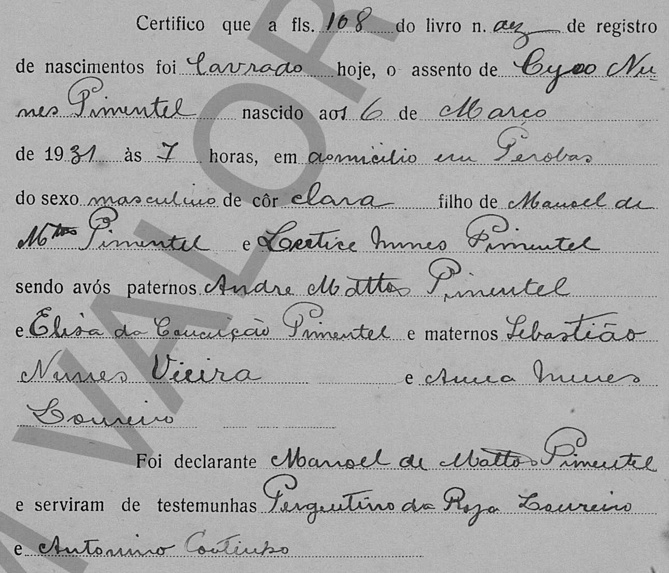 Certifico que a fls. 108 do livro n. dez de registro
de nascimentos foi lavrado hoje, o assento de Cyro Nu-
nes Pimentel nascido aos 6 de Março
de 1931 às 7 horas, em domicilio em Perobas
do sexo masculino de côr clara filho de Manoel de
Mttos Pimentel e Nunes Pimentel
sendo avós paternos Andre Mattos Pimentel
e Elisa da Conceição Pimentel e maternos Sebastião
Nunes Vieira e Anna Nunes
Loureiro
Foi declarante Manoel de Mattos Pimentel
e serviram de testemunhas Pergentino da Roza Loureiro
e Antonino Coutinho
VALOR